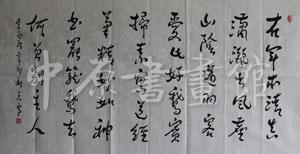 右軍本清真
瀟灑出風塵
山陰過羽客
愛此好鵝賓
掃素寫道經
筆精妙入神
書罷籠鵝去
何曾別主人